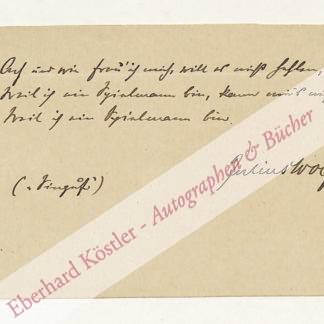 Ach und wie freu' ich mich, will es nicht fehlen,
Weil ich ein Spielmann bin, kann mir's
Weil ich ein Spielmann bin.
(„Singuf“)
Julius Wolf
Eberhard Köstler - Autographen & Bücher